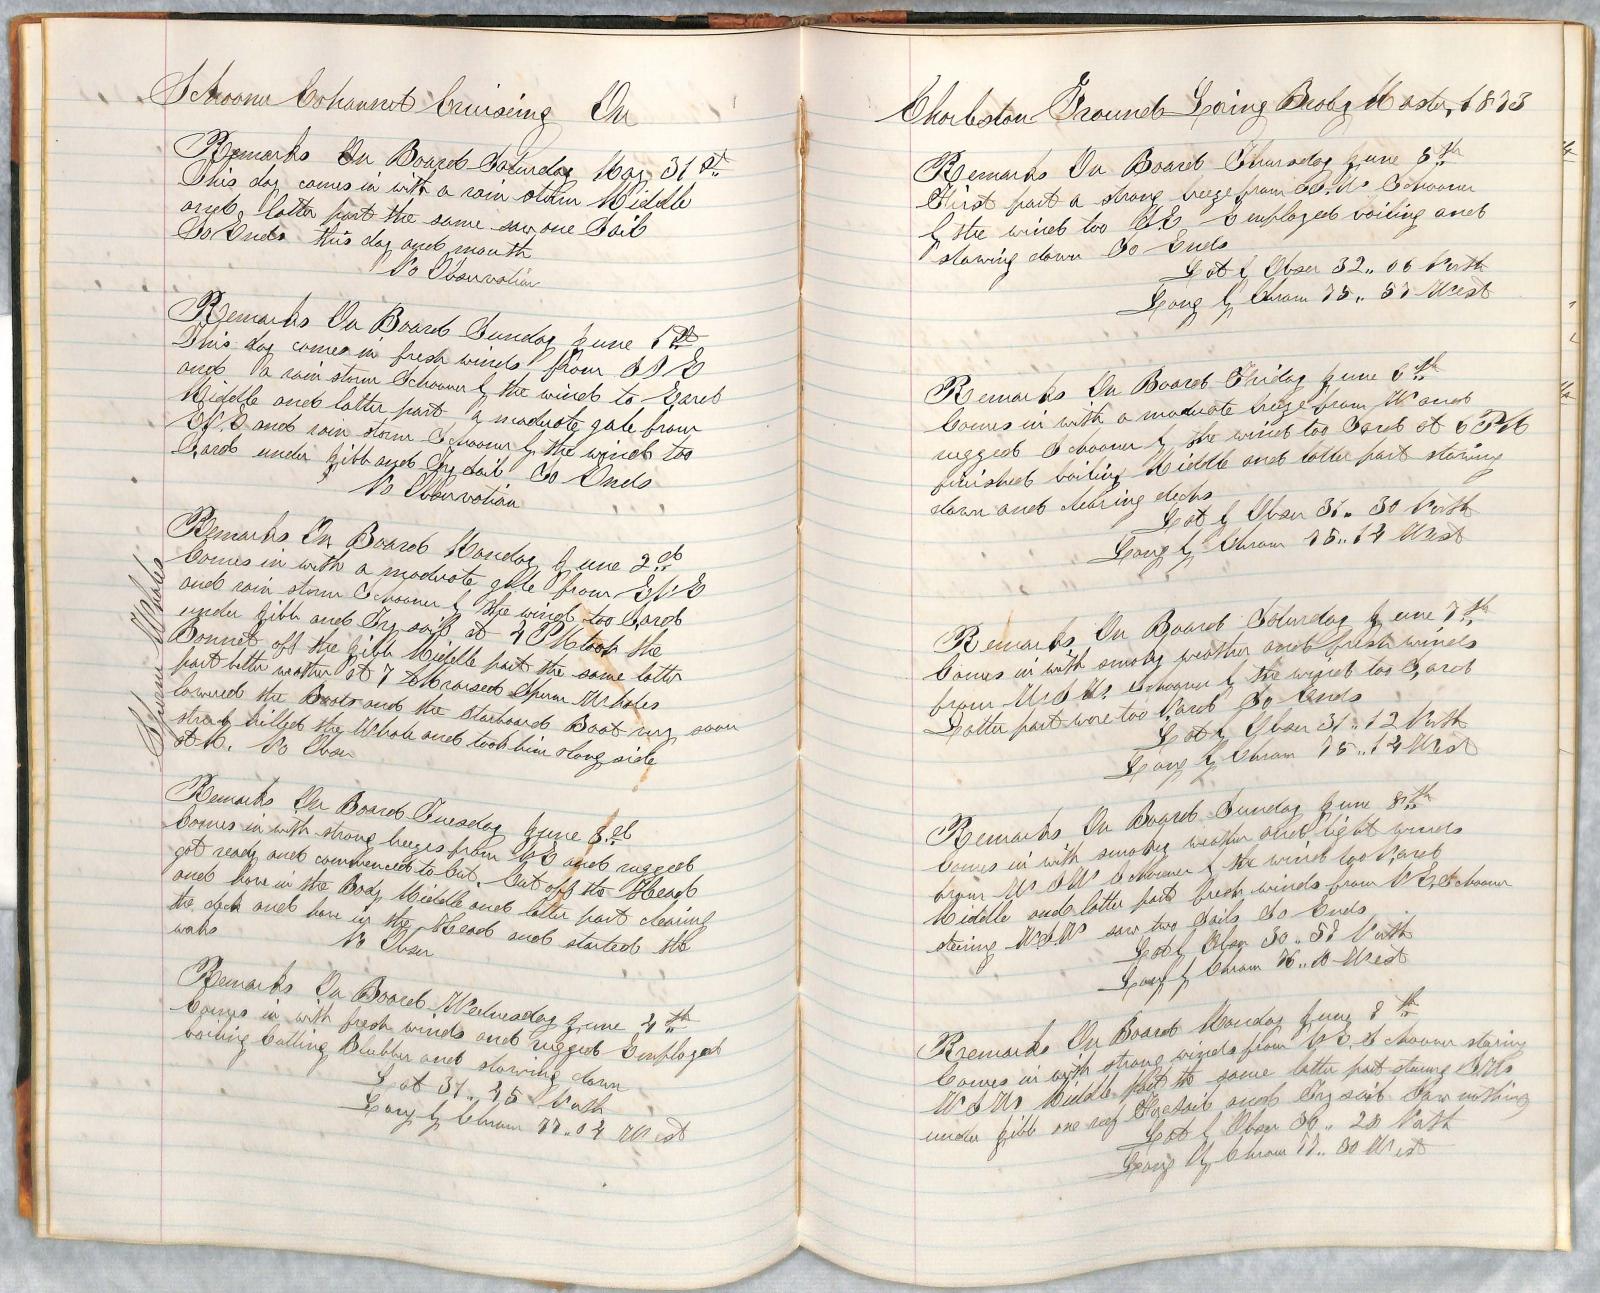 Schooner Cohannet Cruiseing On
Remarks On Board Saturday May 31st
This day comes in with a rain storm Middle
and latter part the same saw one Sail
So Ends this day and month
No Observation
Remarks On Board Sunday June 1st
This day comes in fresh winds from
and a rain storm Schooner by the wind to Eard
Middle and latter part a moderate gale from
and rain storm Schooner by the wind too
under Jibb and Trysail So Ends
No Observation
Remarks On Board Monday June 2nd
Comes in with a moderate gale from
and rain storm Schooner by the wind too
under Jibb and Trysail at 4 PM took the
Bonnet off the Jibb Middle part the same latter
part better weather at 7 AM raised Sperm Whales
lowered the Boats and the Starboard Boat soon
struck killed the Whale and took him along side
at M. No Obser
Sperm Whales
Remarks On Board Tuesday June 3rd
Comes in with strong breezes from NE and rugged
got ready and commenced to Cut. Cut off the Head
and hove in the Body Middle and latter part clearing
the deck and hove in the Head and started the
works No Obser
Remarks On Board Wednesday June 4th
Comes in with fresh winds and rugged Employed
boiling Cutting Blubber and stowing down
Lat 31..45 North
Long by Chrom 77..04 West
Charleston Ground Loring Braley Master, 1873
Remarks On Board Thursday June 5th
Thirst part a strong breeze from Schooner
by the wind too SE Employed boiling and
stowing down So Ends
Lat by Obser 32..06 North
Long by Chrom 75..57 West
Remarks On Board Friday June 6th
Comes in with a moderate breeze from W and
rugged Schooner by the wind too at 6 PM
finished boiling Middle and latter part stowing
down and clearing decks
Lat by Obser 31..30 North
Long by Chrom 75..14 West
Remarks On Board Saturday June 7th
Comes in with smoky weather and fresh winds
from W.S.W. Schooner by the wind too
Latter part wore too So Ends
Lat by Obser 31..12 North
Long by Chrom 75..14 West
Remarks On Board Sunday June 8th
Comes in with smoky weather and light winds
from WSW Schooner by the wind too
Middle and latter part fresh winds from NE Schooner
steering WSW saw two Sails So Ends
Lat by Obser 30..57 North
Long by Chrom 76..10 West
Remarks On Board Monday June 9th
Comes in with strong winds from NE Schooner staring
WSW Middle part the same latter part staring
under Jibb one reef Foresail and Trysail Saw nothing
Lat by Obser 30..20 North
Long by Chrom 77..30 West